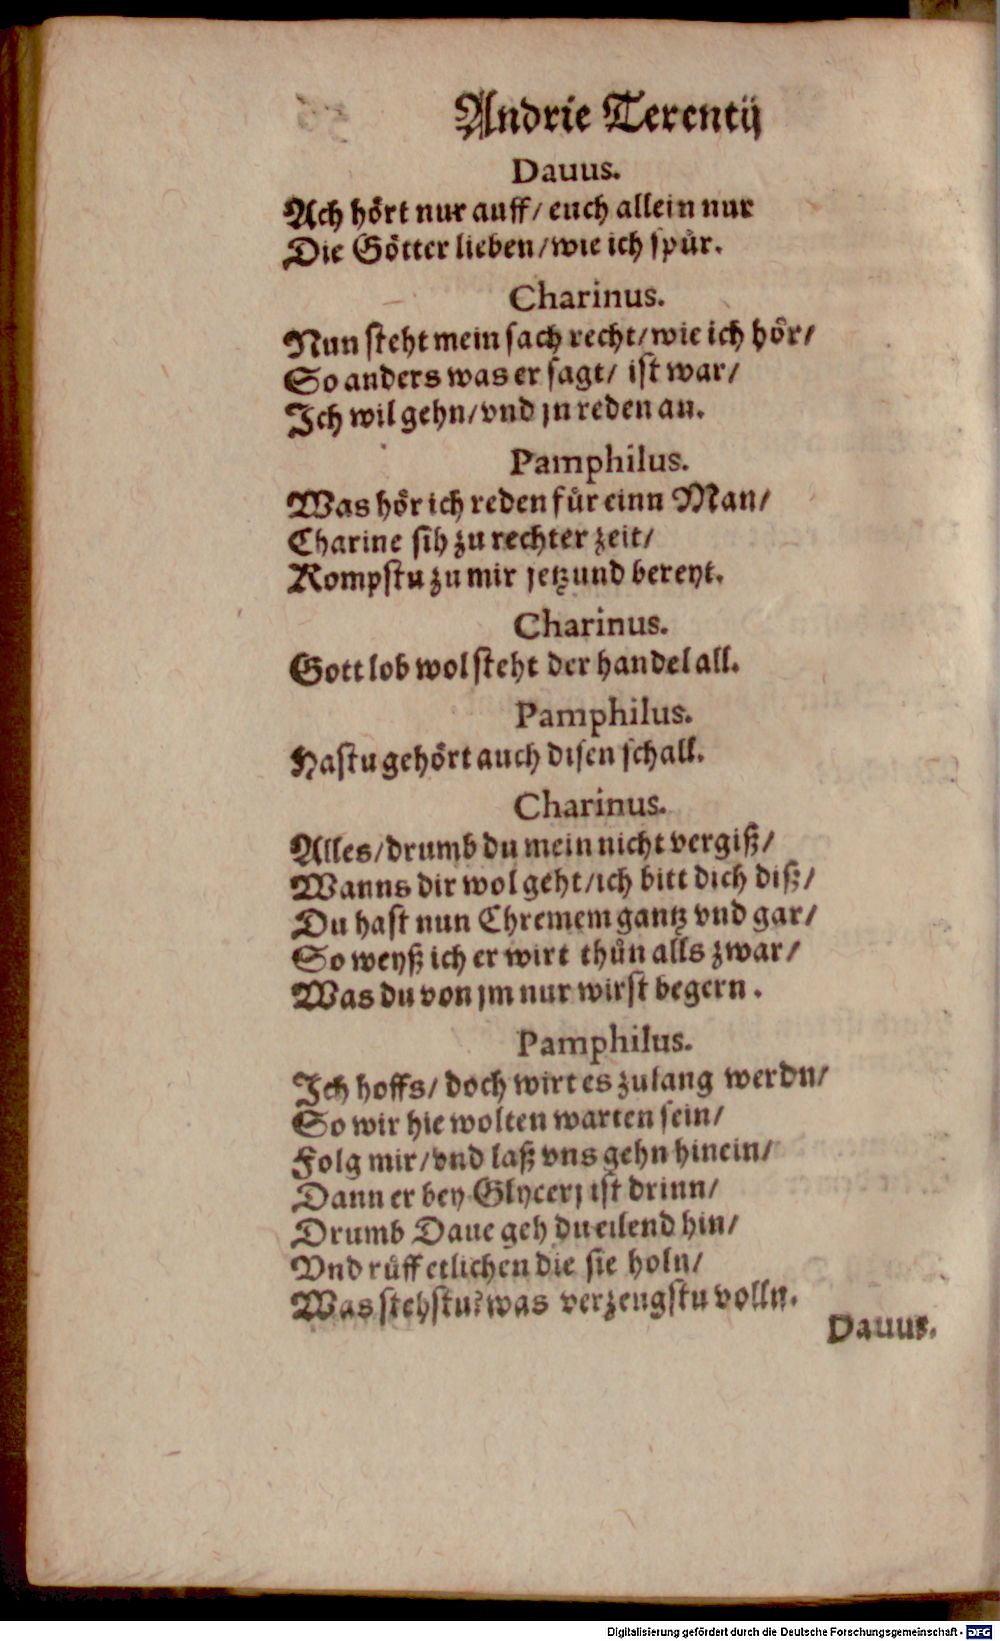 Andrie Terentij
Dauus.
Ach hört nur auff/ euch allein nur
Die Götter lieben/ wie ich spür.
Charinus.
Nun steht mein sach recht/ wie ich hör/
So anders was er sagt/ ist war/
Ich wil gehn/ vnd jn reden an.
Pamphilus.
Was hör ich reden für einn Man/
Charine sih zu rechter zeit/
Kompstu zu mir jetzund bereyt.
Charinus.
Gott lob wol steht der handel all.
Pamphilus.
Hastu gehört auch disen schall.
Charinus.
Alles/ drumb du mein nicht vergiß/
Wanns dir wol geht/ ich bitt dich diß/
Du hast nun Chremem gantz vnd gar/
So weyß ich er wirt thůn alls zwar/
Was du von jm nur wirst begern.
Pamphilus.
Ich hoffs/ doch wirt es zulang werdn/
So wir hie wolten warten sein/
Folg mir/ vnd laß vns gehn hinein/
Dann er bey Glycerj ist drinn/
Drumb Daue geh du eilend hin/
Vnd růff etlichen die sie holn/
Was stehstu? was verzeugstu volln.
Dauus.
Digitalisierung gefördert durch die Deutsche Forschungsgemeinschaft - DFG